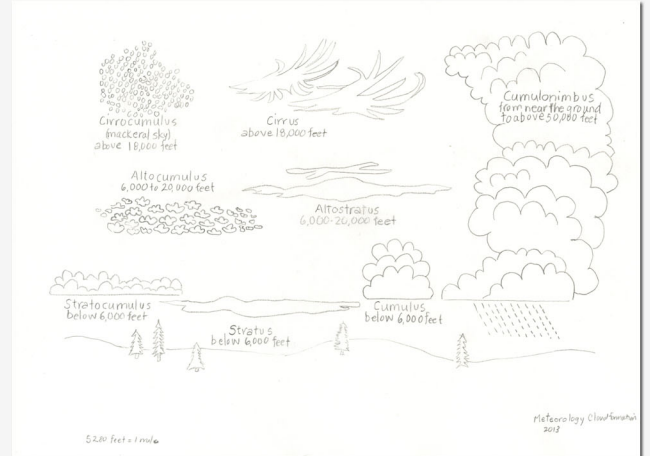 Cirrocumulus
(mackeral sky)
above 18,000 feet
Cirrus
above 18,000 feet
Cumulonimbus
from near the ground
to above 50,000 feet
Altocumulus
6,000 to 20,000 feet
Altostratus
6,000-20,000 feet
Stratocumulus
below 6,000 feet
Stratus
below 6,000 feet
Cumulus
below 6,000 feet
Meteorology Cloud formation
2013
5280 feet = 1 mile